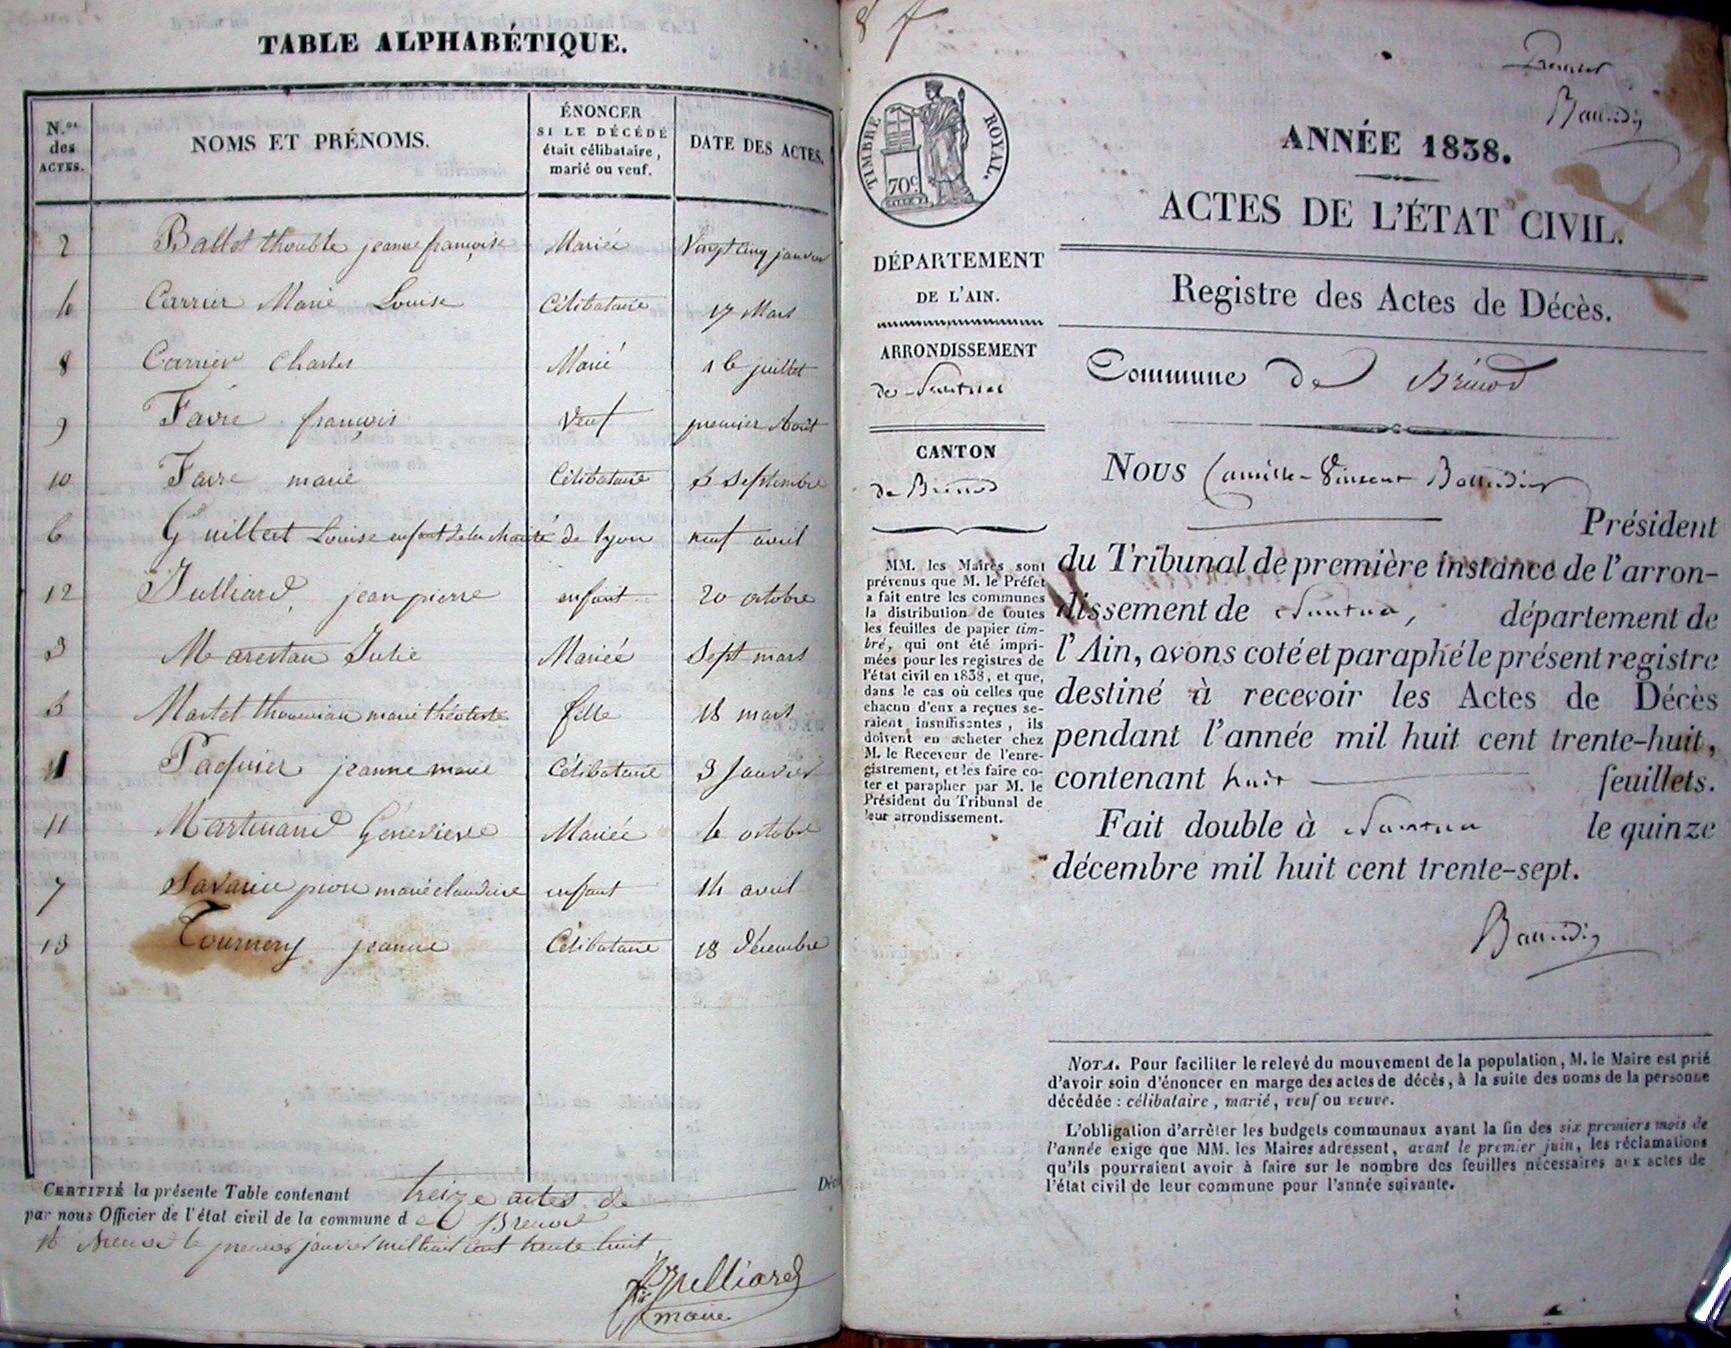 TABLE ALPHABÉTIQUE.
N.os des ACTES.
NOMS ET PRÉNOMS.
ÉNONCER
SI LE DÉCÉDÉ
était célibataire,
marié ou veuf.
DATE DES ACTES.
2 Ballet thouble jeanne françoise Mariée Vingt cinq janvier
4 Carrier Marie Louise Célibataire 17 Mars
8 Carrier Charles Marié 16 juillet
9 Favre françois Veuf premier Août
10 Favre marie Célibataire 5 Septembre
6 Guilbert Louise enfant de la charité de lyon neuf avril
12 Julliard, jean pierre enfant 20 octobre
3 Marestan Julie Mariée Sept mars
5 Martel marie fille 18 mars
1 Paquier jeanne marie Célibataire 3 Janvier
11 Martinand Génevieve Mariée 6 octobre
7 Savarin pion marie claudine enfant 14 avril
13 Tournery jeanne Célibataire 18 décembre
CERTIFIÉ la présente Table contenant treize actes de Décè
par nous Officier de l'état civil de la commune de Brenod
le premier janvier mil huit cent trente huit
Julliard
maire
8
Premier
Baudin
TIMBRE ROYAL.
70c
ANNÉE 1838.
ACTES DE L'ÉTAT CIVIL.
DÉPARTEMENT
DE L'AIN.
ARRONDISSEMENT
de Nantua
CANTON
de Brénod
MM. les Maires sont
prévenus que M. le Préfet
a fait entre les communes
la distribution de toutes
les feuilles de papier tim-
bré, qui ont été impri-
mées pour les registres de
l'état civil en 1838, et que,
dans le cas où celles que
chacun d'eux a reçues se-
raient insuffisantes, ils
doivent en acheter chez
M. le Receveur de l'enre-
gistrement, et les faire co-
ter et parapher par M. le
Président du Tribunal de
leur arrondissement.
Registre des Actes de Décès.
Commune de Brénod
Nous Camille-Vincent Baudin
Président
du Tribunal de première instance de l'arron-
dissement de Nantua, département de
l'Ain, avons coté et paraphé le présent registre
destiné à recevoir les Actes de Décès
pendant l'année mil huit cent trente-huit,
contenant huit feuillets.
Fait double à Nantua le quinze
décembre mil huit cent trente-sept.
Baudin
NOTA. Pour faciliter le relevé du mouvement de la population, M. le Maire est prié
d'avoir soin d'énoncer en marge des actes de décès, à la suite des noms de la personne
décédée : célibataire, marié, veuf ou veuve.
L'obligation d'arrêter les budgets communaux avant la fin des six premiers mois de
l'année exige que MM. les Maires adressent, avant le premier juin, les réclamations
qu'ils pourraient avoir à faire sur le nombre des feuilles nécessaires aux actes de
l'état civil de leur commune pour l'année suivante.